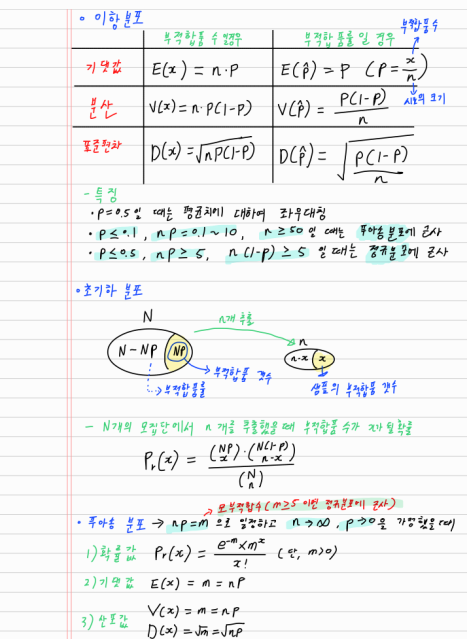 • 이항분포
부적합품 수 일경우 부적합품률 일 경우 부적합품수
기댓값 E(x) = n·P E(p̂) = P (P = x/n)
시료의 크기
분산 V(x) = n·P(1-P) V(p̂) = P(1-P)/n
표준편차 D(x) = √nP(1-P) D(p̂) = √P(1-P)/n
- 특징
• P=0.5 일 때는 평균치에 대하여 좌우대칭
• P≤0.1, nP=0.1~10, n≥50 일 때는 푸아송분포에 근사
• P≤0.5, nP≥5, n(1-P)≥5 일 때는 정규분포에 근사
• 초기하 분포
N n개 추출 n
N-NP NP n-x x
부적합품 갯수
부적합품률 샘플의 부적합품 갯수
- N개의 모집단에서 n개를 추출했을때 부적합품 수가 x가 될 확률
Pr(x) = (NP x)·(N(1-P) n-x) / (N n)
모부적합수(m≥5 이면 정규분포에 근사)
• 푸아송 분포 → nP=m 으로 일정하고 n→∞, P→0을 가정했을때
1) 확률값 Pr(x) = e⁻ᵐ×mˣ/x! (단, m>0)
2) 기댓값 E(x) = m = nP
3) 산포값 V(x) = m = nP
D(x) = √m = √nP